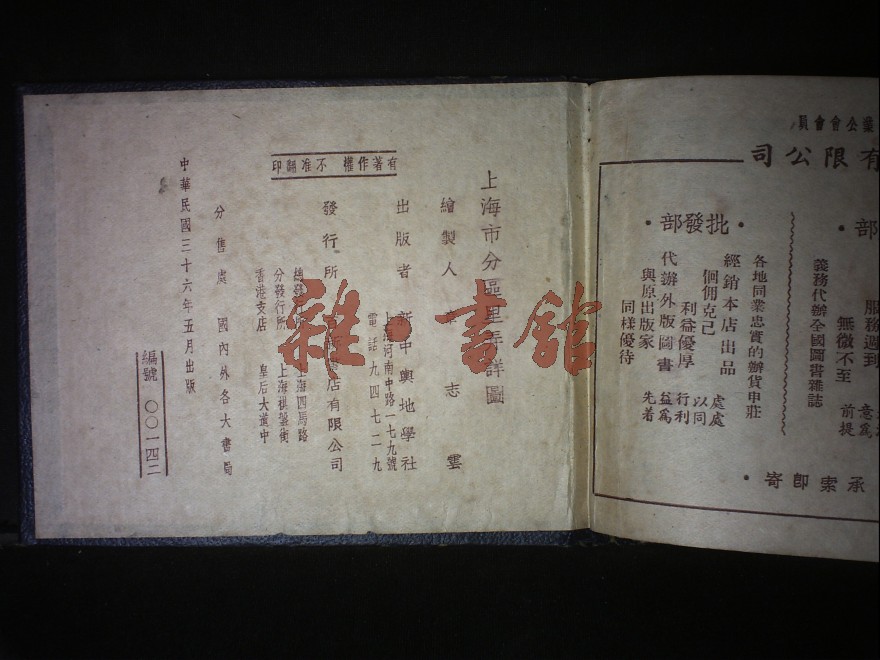 上海市分區里弄詳圖
繪製人 志雲
出版者 新中輿地學社
上海河南中路一七九號
電話九四七二九
有著作權 不准翻印
發行所 書店有限公司
總發行所 上海四馬路
分發行所 上海棋盤街
香港支店 皇后大道中
分售處 國內外各大書局
中華民國三十六年五月出版
編號 〇〇一四二
雜·書館
業公會會員
有限公司
部·
服務週到
無微不至 前提
義務代辦全國圖書雜誌
·批發部·
各地同業忠實的辦貨申莊
經銷本店出品 處處
佪佣克己 以同
利益優厚 行利
代辦外版圖書 益爲
與原出版家 先著
同樣優待
承索卽寄·